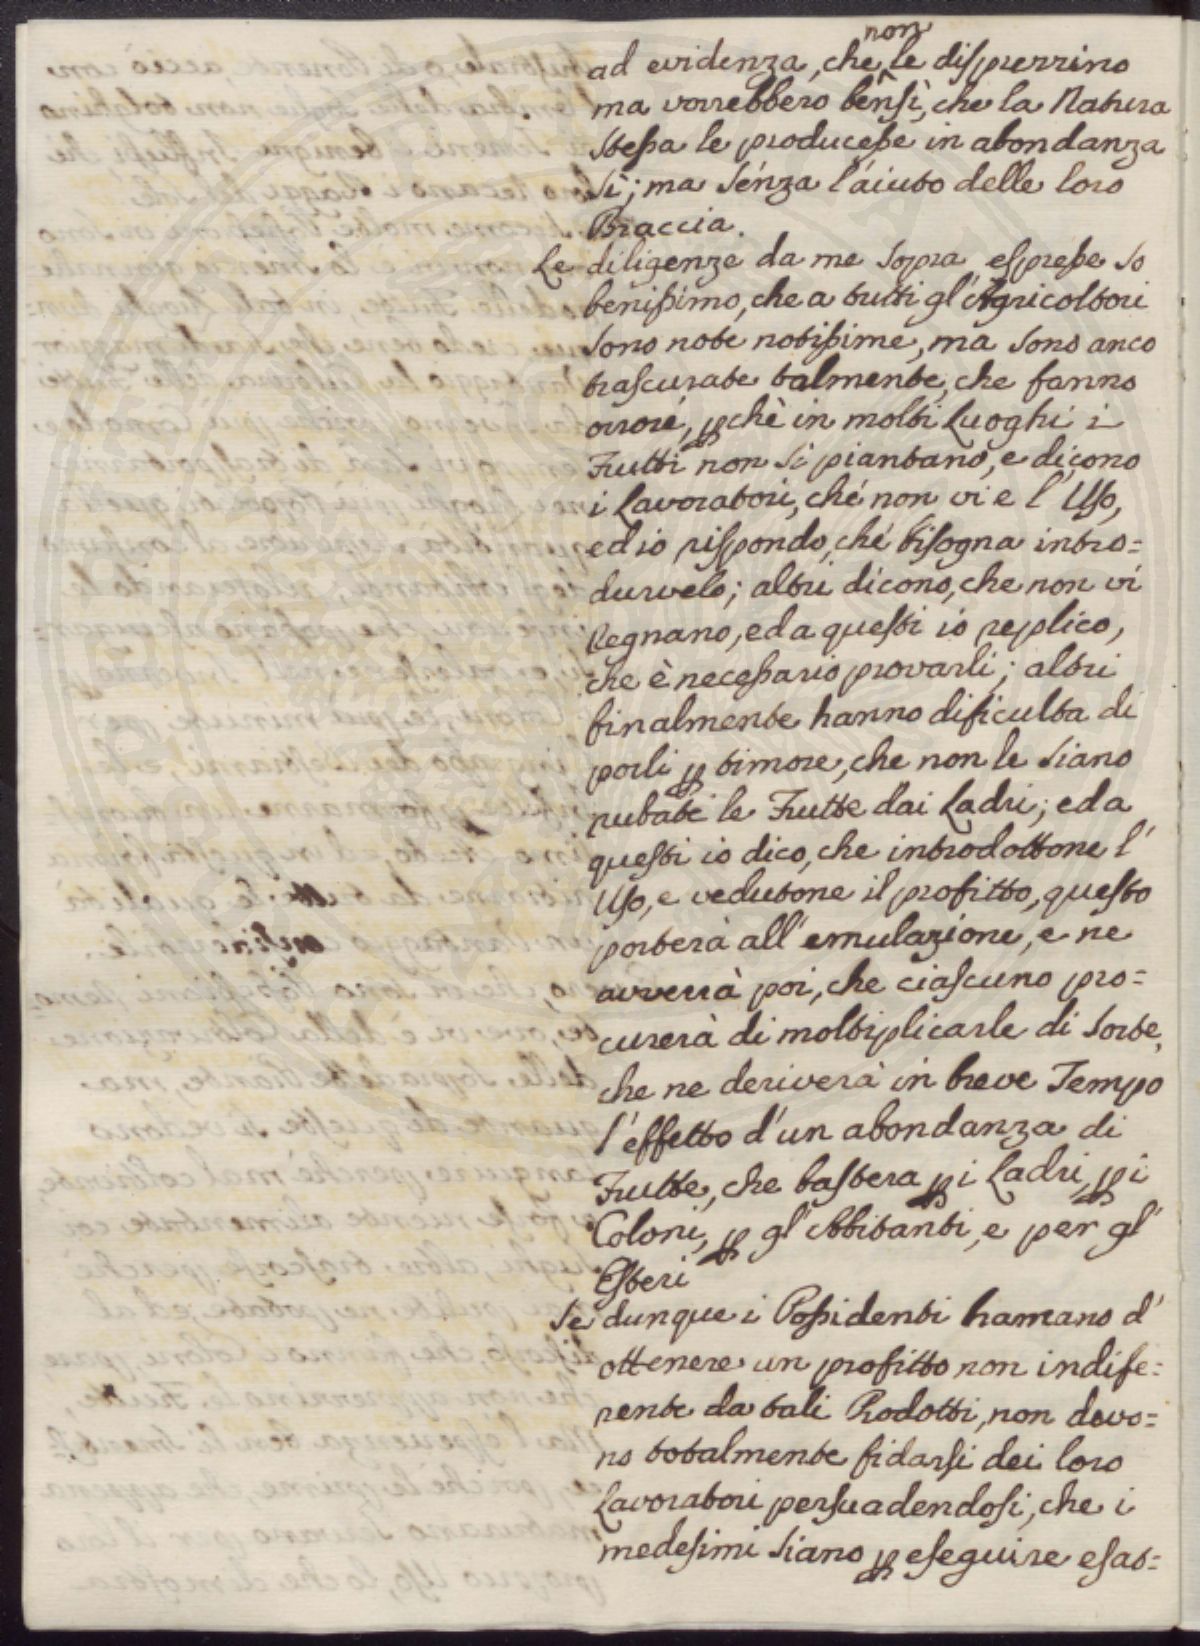 ad evidenza, che non le disprerrino
ma vorrebbero bensì, che la Natura
stessa le producesse in abondanza
sì; ma senza l'aiuto delle loro
Braccia.
Le diligenze da me sopra espresse so
benissimo, che a tutti gl'Agricoltori
sono note notissime, ma sono anco
trascurate talmente, che fanno
orrore, pchè in molti Luoghi i
Frutti non si piantano, e dicono
i Lavoratori, che non vi e l'Uso,
ed io rispondo, che bisogna intro=
durvelo; altri dicono, che non vi
Regnano, ed a questi io replico,
che è necessario provarli; altri
finalmente hanno dificulta di
porli p timore, che non le siano
rubate le Frutte dai Ladri; ed a
questi io dico, che introdottone l'
Uso, e vedutone il profitto, questo
porterà all'emulazione, e ne
avverrà poi, che ciascuno pro=
curerà di moltiplicarle di sorte,
che ne deriverà in breve Tempo
l'effetto d'un abondanza di
Frutte, che bastera p i Ladri, p i
Coloni, p gl'Abbitanti, e per gl'
Esteri
Se dunque i Possidenti bramano d'
ottenere un profitto non indife=
rente da tali Prodotti, non devo=
no totalmente fidarsi dei loro
Lavoratori persuadendosi, che i
medesimi siano p eseguire esat=